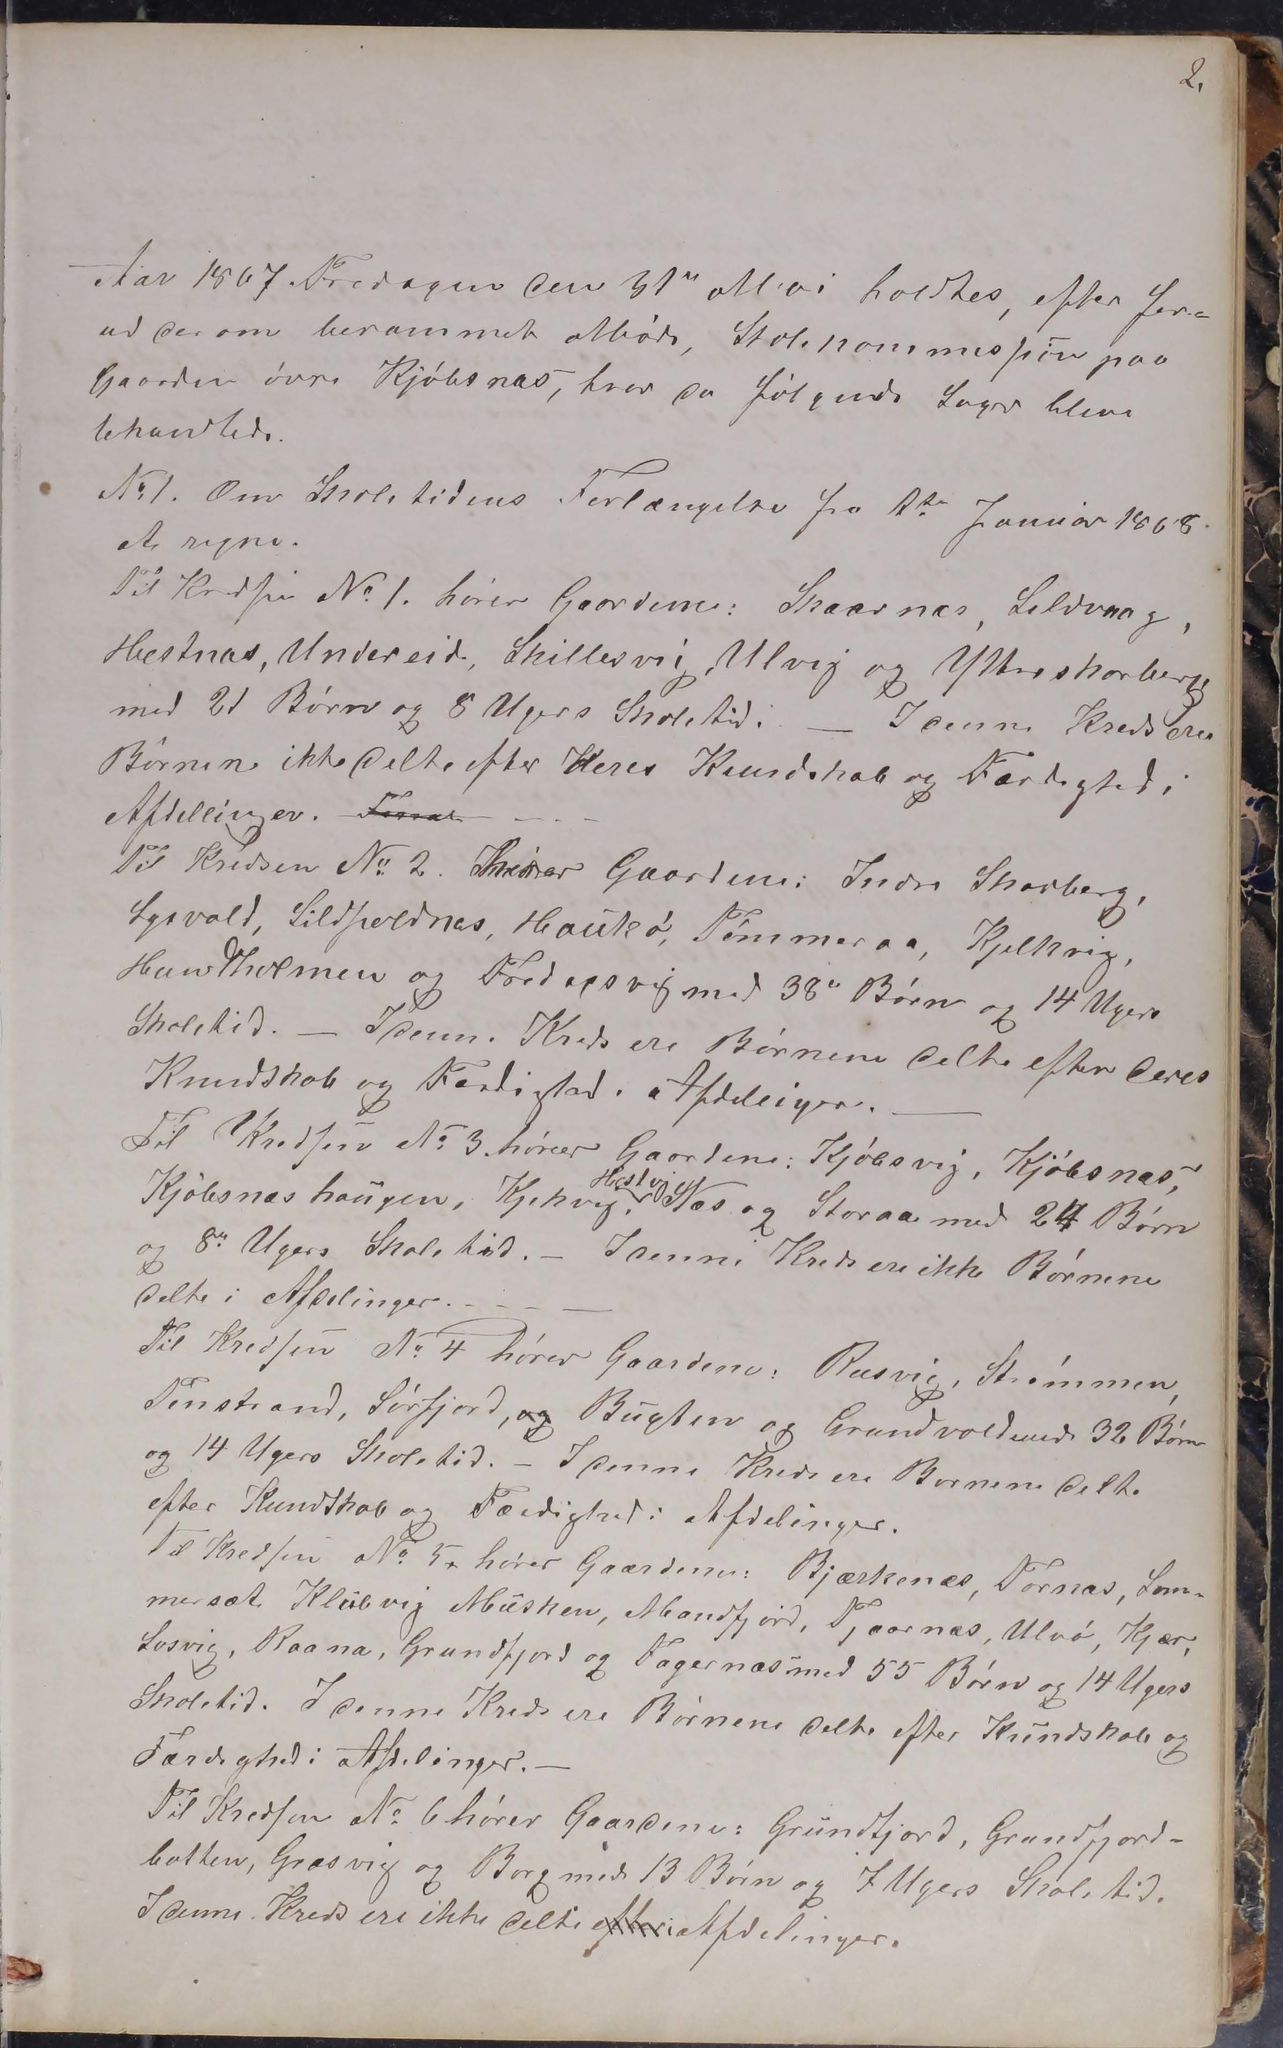 2.
Aar 1867 Fredagen den 31te Mai holdtes, efter for-
ud derom berammet Møde, Skolekommesjon paa
Gaarden övre Kjöbsnæs, hvor da fölgende Sager bleve
behandlede.
No 1. Om Skoletidens Forlængelse fra 1ste Januar 1868
at regne.
Til Kredsen No 1. hörer Gaardene: Skaarnæs, Sildvaag,
Hestnæs, Undereid, Skillesvig, Ulvig og Yttreskorberg
med 21 Börn og 8 Ugers Skoletid. — I denne Kreds ere
Börnene ikke delte efter deres Kundskab og Færdighed i
Afdellinger.
Til Kredsen No 2. hörer Gaardene: Indre Skarberg,
Lysvold, Sildpoldnes, Haukö, Tömmeraa, Kjelkvig,
Hundholmen og Fredagsvig med 38 Börn og 14 Ugers
Skoletid. — I denne Kreds ere Börnene delte efter deres
Kundskab og Færdighed i Afdelinger. —
Til Kredsen No 3. hörer Gaardene: Kjöbsvig, Kjöbsnæs,
Kjöbsnæshaugen, Kjekvig, Hestvig Næs og Storaa med 24 Börn
og 8 Ugers Skoletid. — I denne Kreds ere ikke Börnene
delte i Afdelinger. —
Til Kredsen No 4 hörer Gaardene: Rusvig, Strömmen,
Tenstrand, Sörfjord, og Bugten og Grundvold med 32 Börn
og 14 Ugers Skoletid. — I denne Kreds ere Bornene delte
efter Kundskab og Færdighed i Afdelinger.
Til Kredsen No 5. hörer Gaardene: Bjærkenæs, Tornæs, Som-
mersæt, Klubvig Musken, Mandfjord, Tjaarnæs, Ulvö, Kjær,
Losvig, Raana, Grundfjord og Fagernæs med 55 Börn og 14 Ugers
Skoletid. I denne Kreds ere Börnene delte efter Kundskab og
Færdighed i Afdelinger. —
Til Kredsen No 6 hörer Gaardene: Grundfjord, Grundfjord-
botten, Græsvig og Borg med 13 Börn og 7 Ugers Skoletid.
I denne Kreds ere ikke delte efter i Afdelinger.